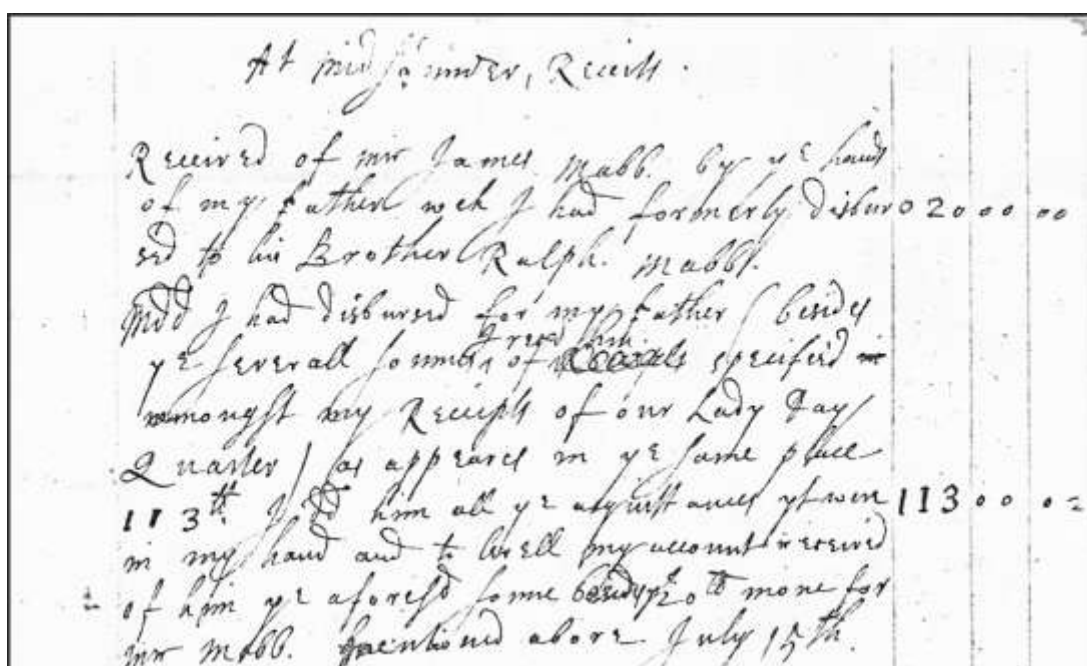 At midsummer, Receits.
Received of mr James Mabb. by ye hands
of my father wch I had formerly disbur 02000 00
sed to his Brother Ralph. Mabb.
Mdd I had disbursed for my father ( besides
I recd him
ye severall sommes of specified in
amongst my Receipts of our Lady Day
Quarter ) as appeares in ye same place
113th. I him all ye acquittances yt were 113 00 0
in my hand and to my account received
of him ye aforesd somme besids ye 20th more for
mr Mabb. mentioned above July 15th.